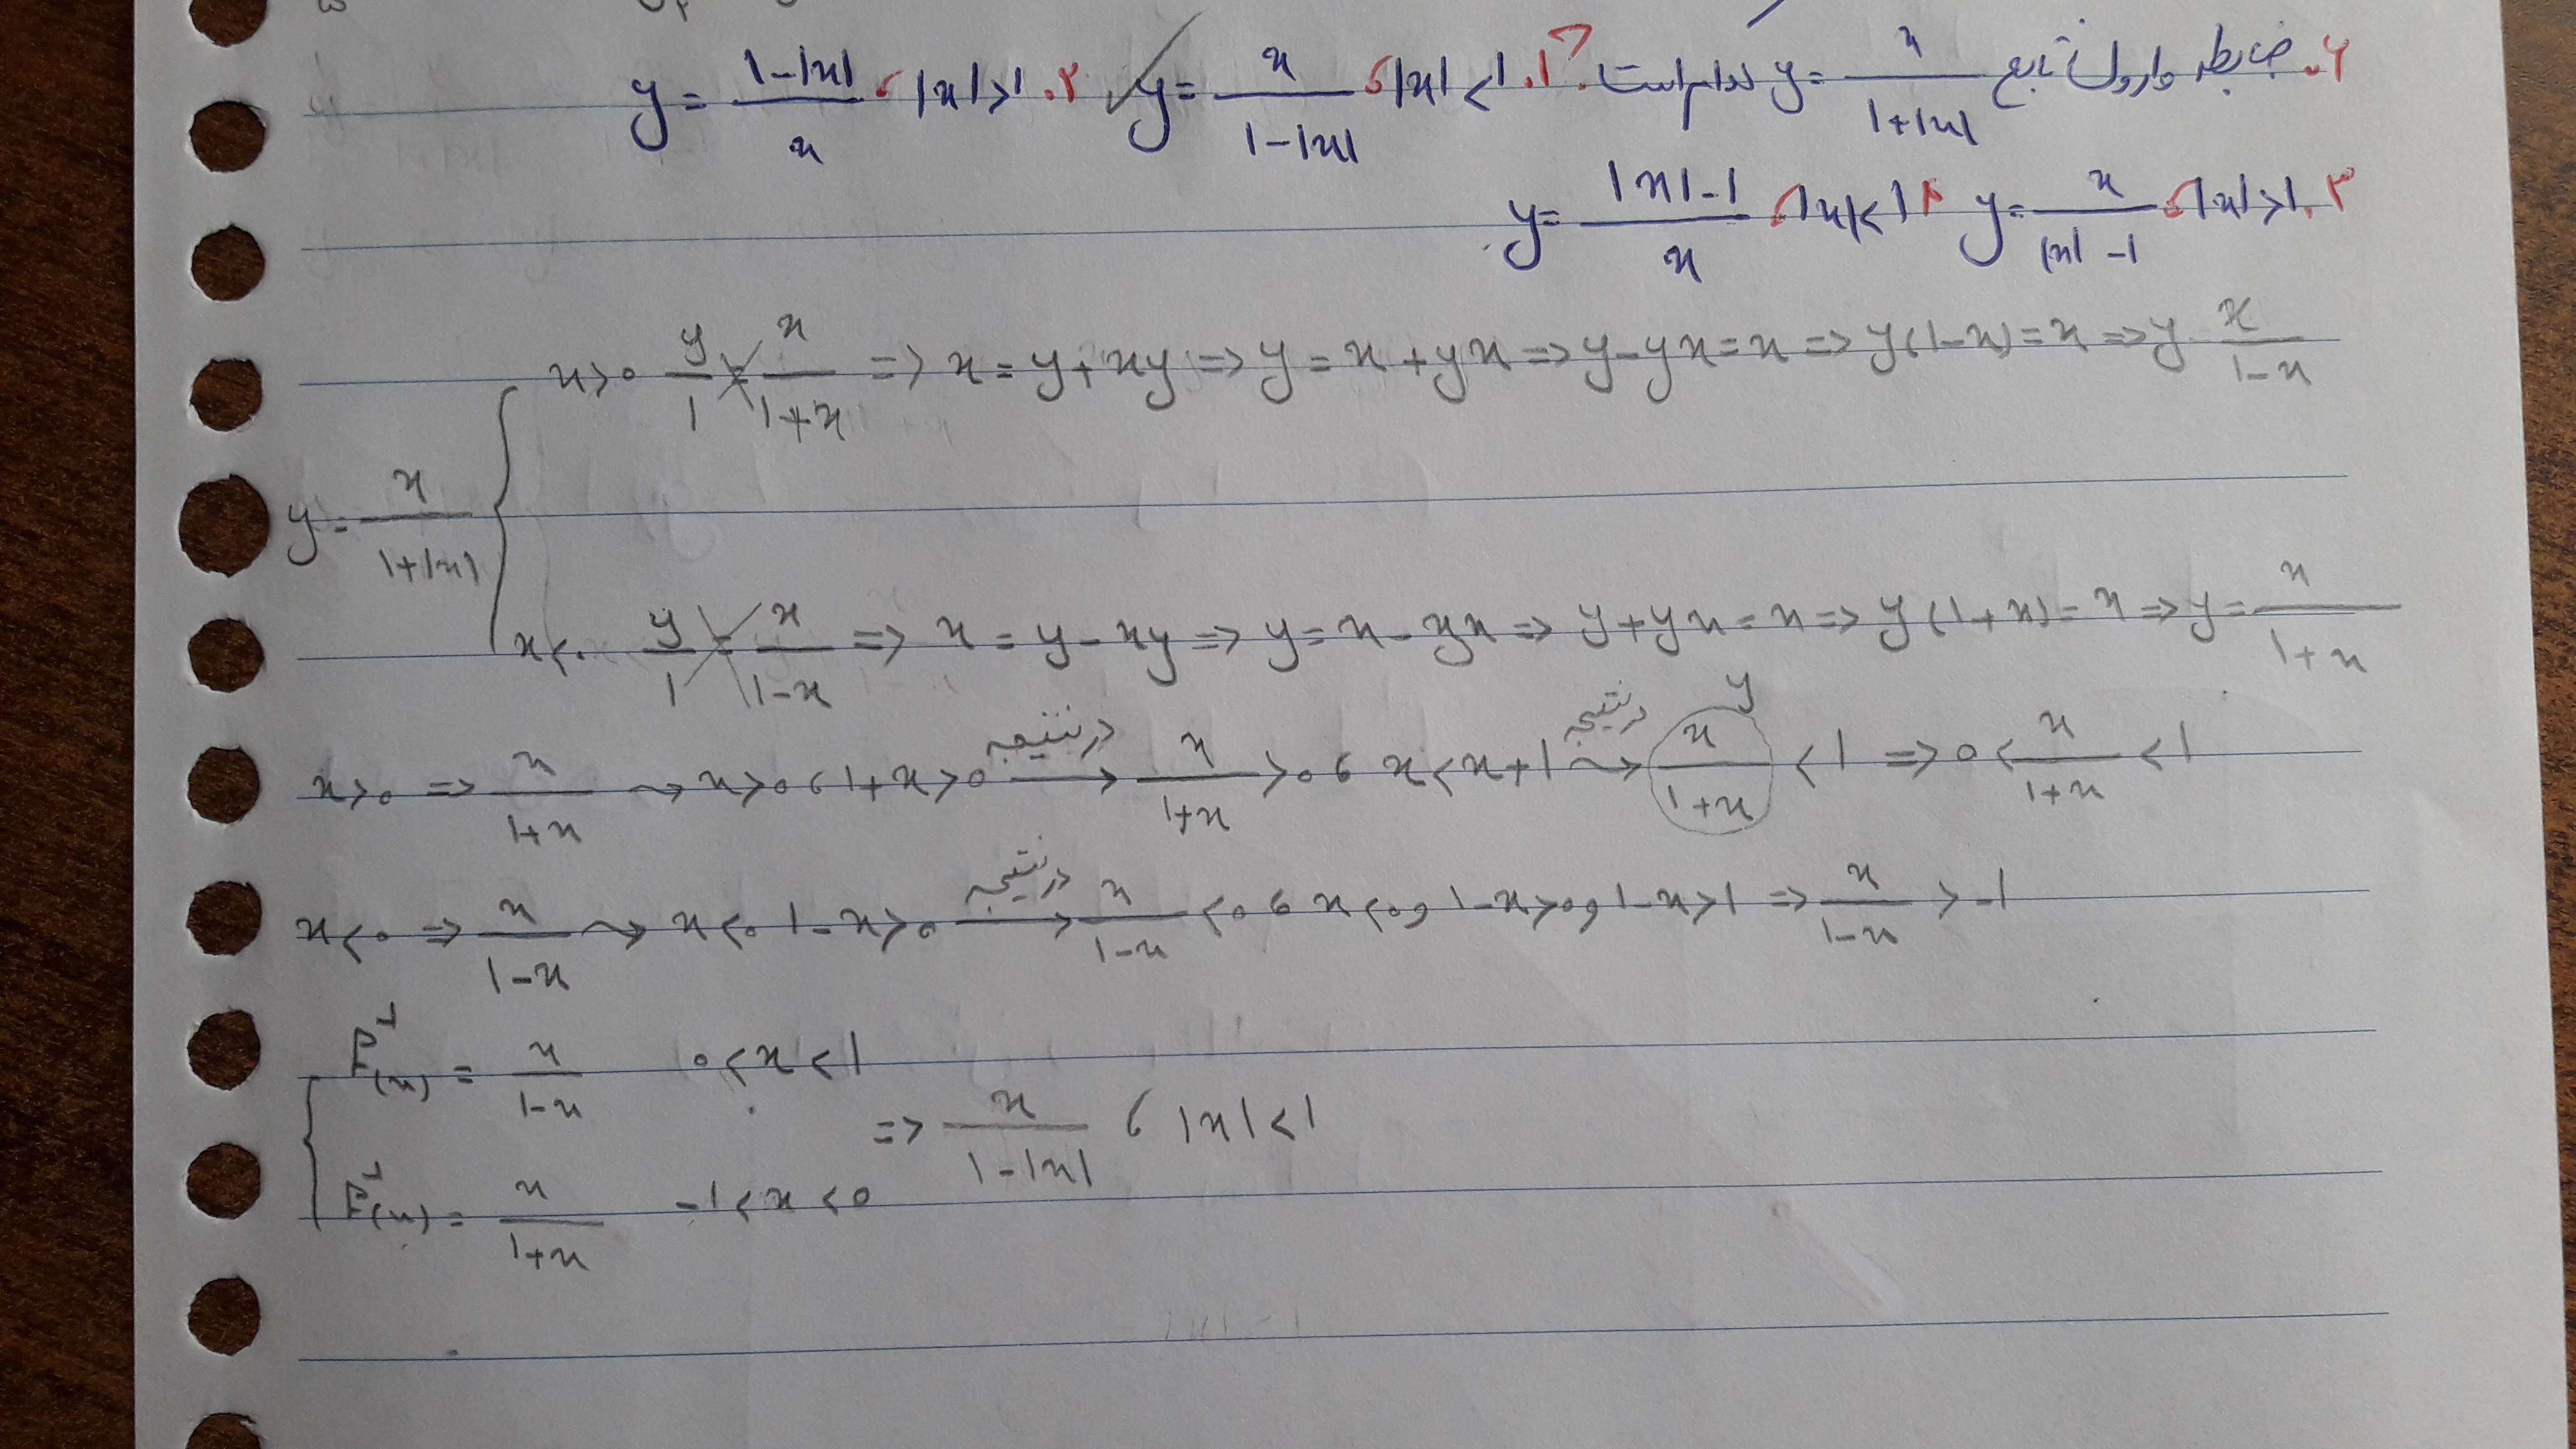 ۶. ضابطه وارون تابع y = x/(1+|x|) کدام است. ۱. y = x/(1-|x|) ، |x|<1 ۲. y = (1-|x|)/x ، |x|>1
۳. y = x/(|x|-1) ، |x|>1 ۴. y = (|x|-1)/x ، |x|<1
x>0 y/1 = x/(1+x) => x = y+xy => y = x+yx => y-yx = x => y(1-x) = x => y x/(1-x)
y = x/(1+|x|)
x<0 y/1 = x/(1-x) => x = y-xy => y = x-yx => y+yx = x => y(1+x) = x => y = x/(1+x)
x>0 => x/(1+x) ⇝ x>0 ، 1+x>0 در نتیجه → x/(1+x) >0 ، x<x+1 در نتیجه ⇝ x/(1+x) y <1 => 0< x/(1+x) <1
x<0 => x/(1-x) ⇝ x<0 1-x>0 در نتیجه → x/(1-x) <0 ، x<0 و 1-x>0 و 1-x>1 => x/(1-x) >-1
F⁻¹(x) = x/(1-x) 0<x<1
=> x/(1-|x|) ، |x|<1
F⁻¹(x) = x/(1+x) -1<x<0